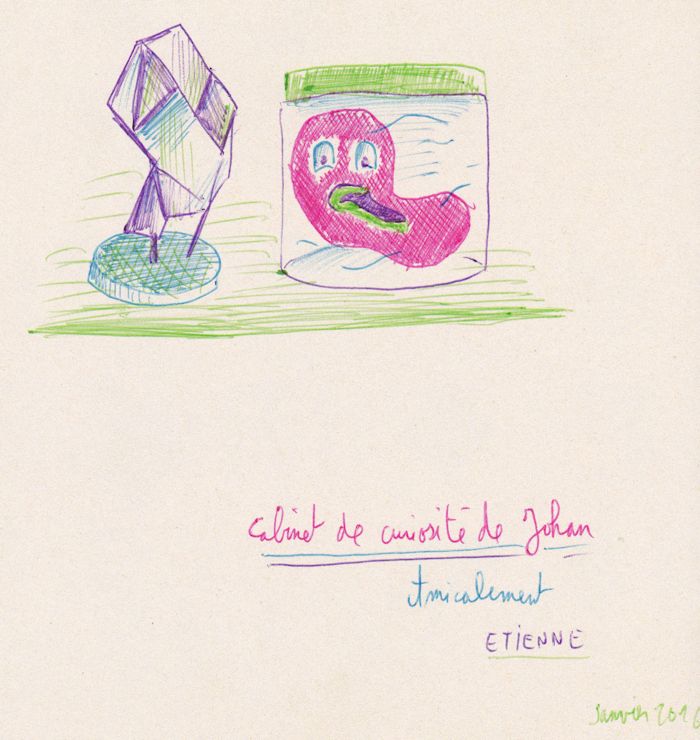 Cabinet de curiosité de Johan
Amicalement
ETIENNE
Janvier 2016